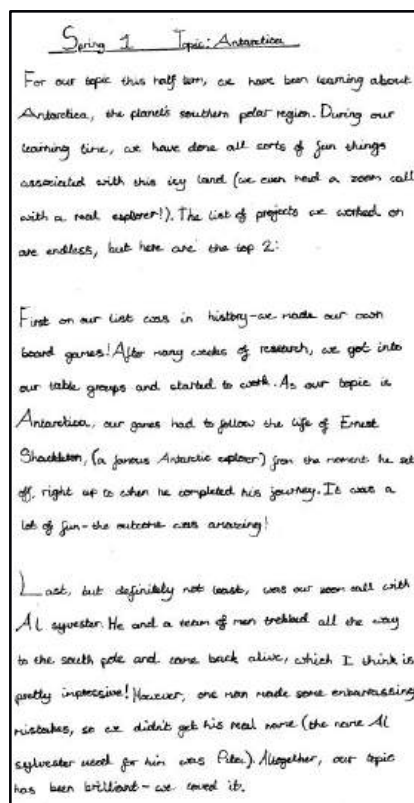 Spring 1 Topic: Antarctica
For our topic this half term, we have been learning about
Antarctica, the planet's southern polar region. During our
learning time, we have done all sorts of fun things
associated with this icy land (we even had a zoom call
with a real explorer!). The list of projects we worked on
are endless, but here are the top 2:
First on our list was in history-we made our own
board games! After many weeks of research, we got into
our table groups and started to work. As our topic is
Antarctica, our games had to follow the life of Ernest
Shackleton, (a famous Antarctic explorer) from the moment he set
off, right up to when he completed his journey. It was a
lot of fun-the outcome was amazing!
Last, but definitely not least, was our zoom call with
Al sylvester. He and a team of men trekked all the way
to the south pole and came back alive, which I think is
pretty impressive! However, one man made some embarrassing
mistakes, so we didn't get his real name (the name Al
sylvester used for him was Pete). Altogether, our topic
has been brilliant-we loved it.